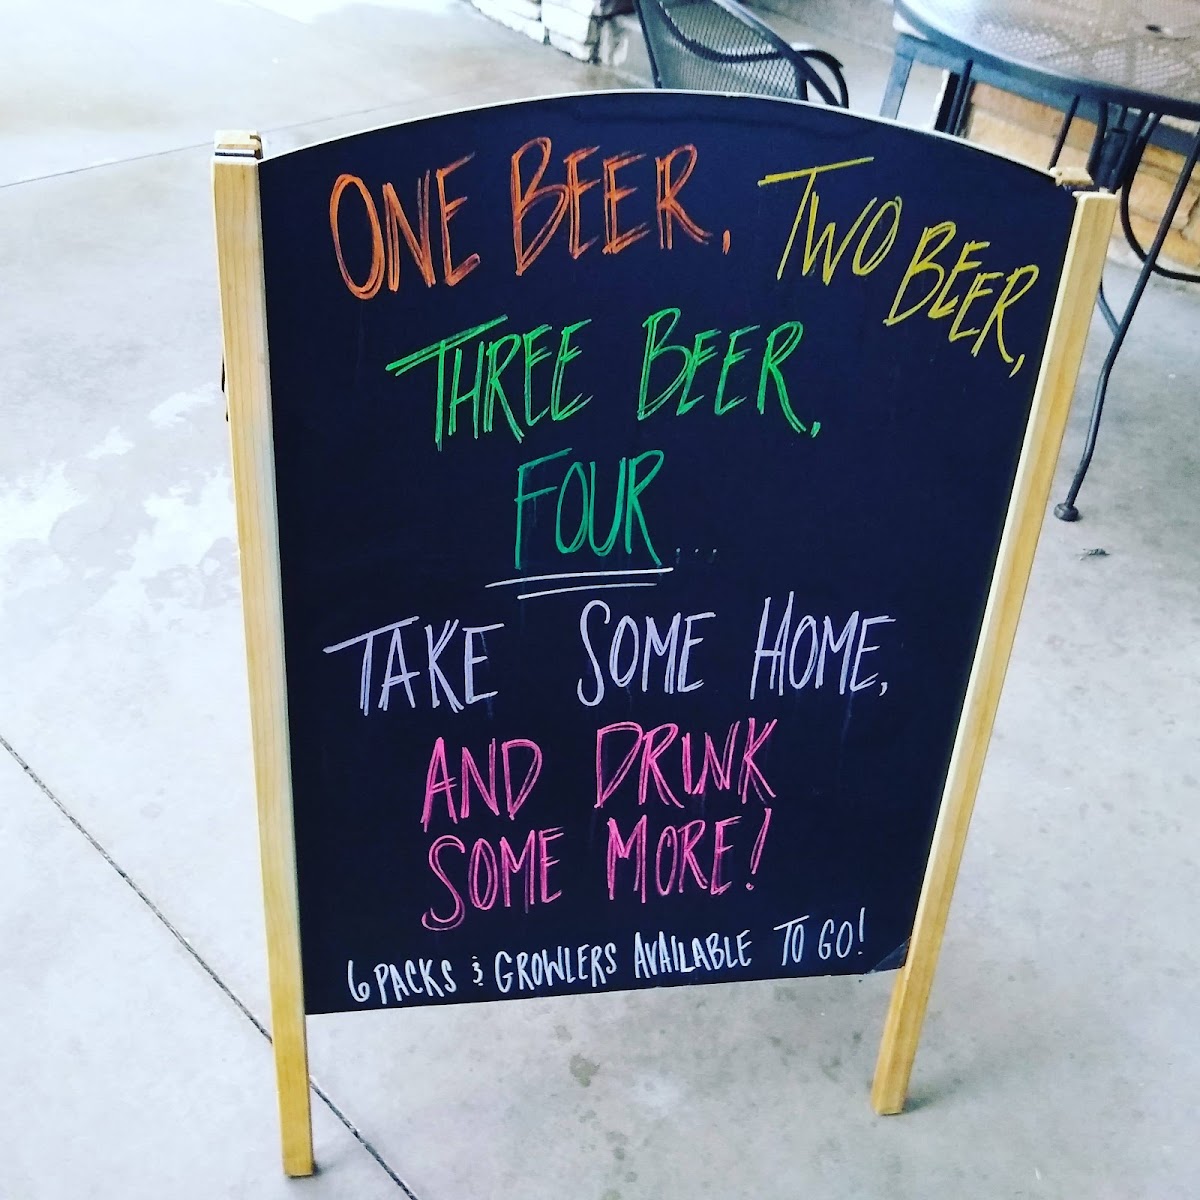 ONE BEER, TWO BEER,
THREE BEER,
FOUR...
TAKE SOME HOME,
AND DRINK
SOME MORE!
6 PACKS & GROWLERS AVAILABLE TO GO!